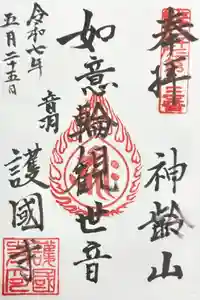 奉拝
神齢山
如意輪観世音
音羽
護國寺
令和七年
五月二十五日
護國